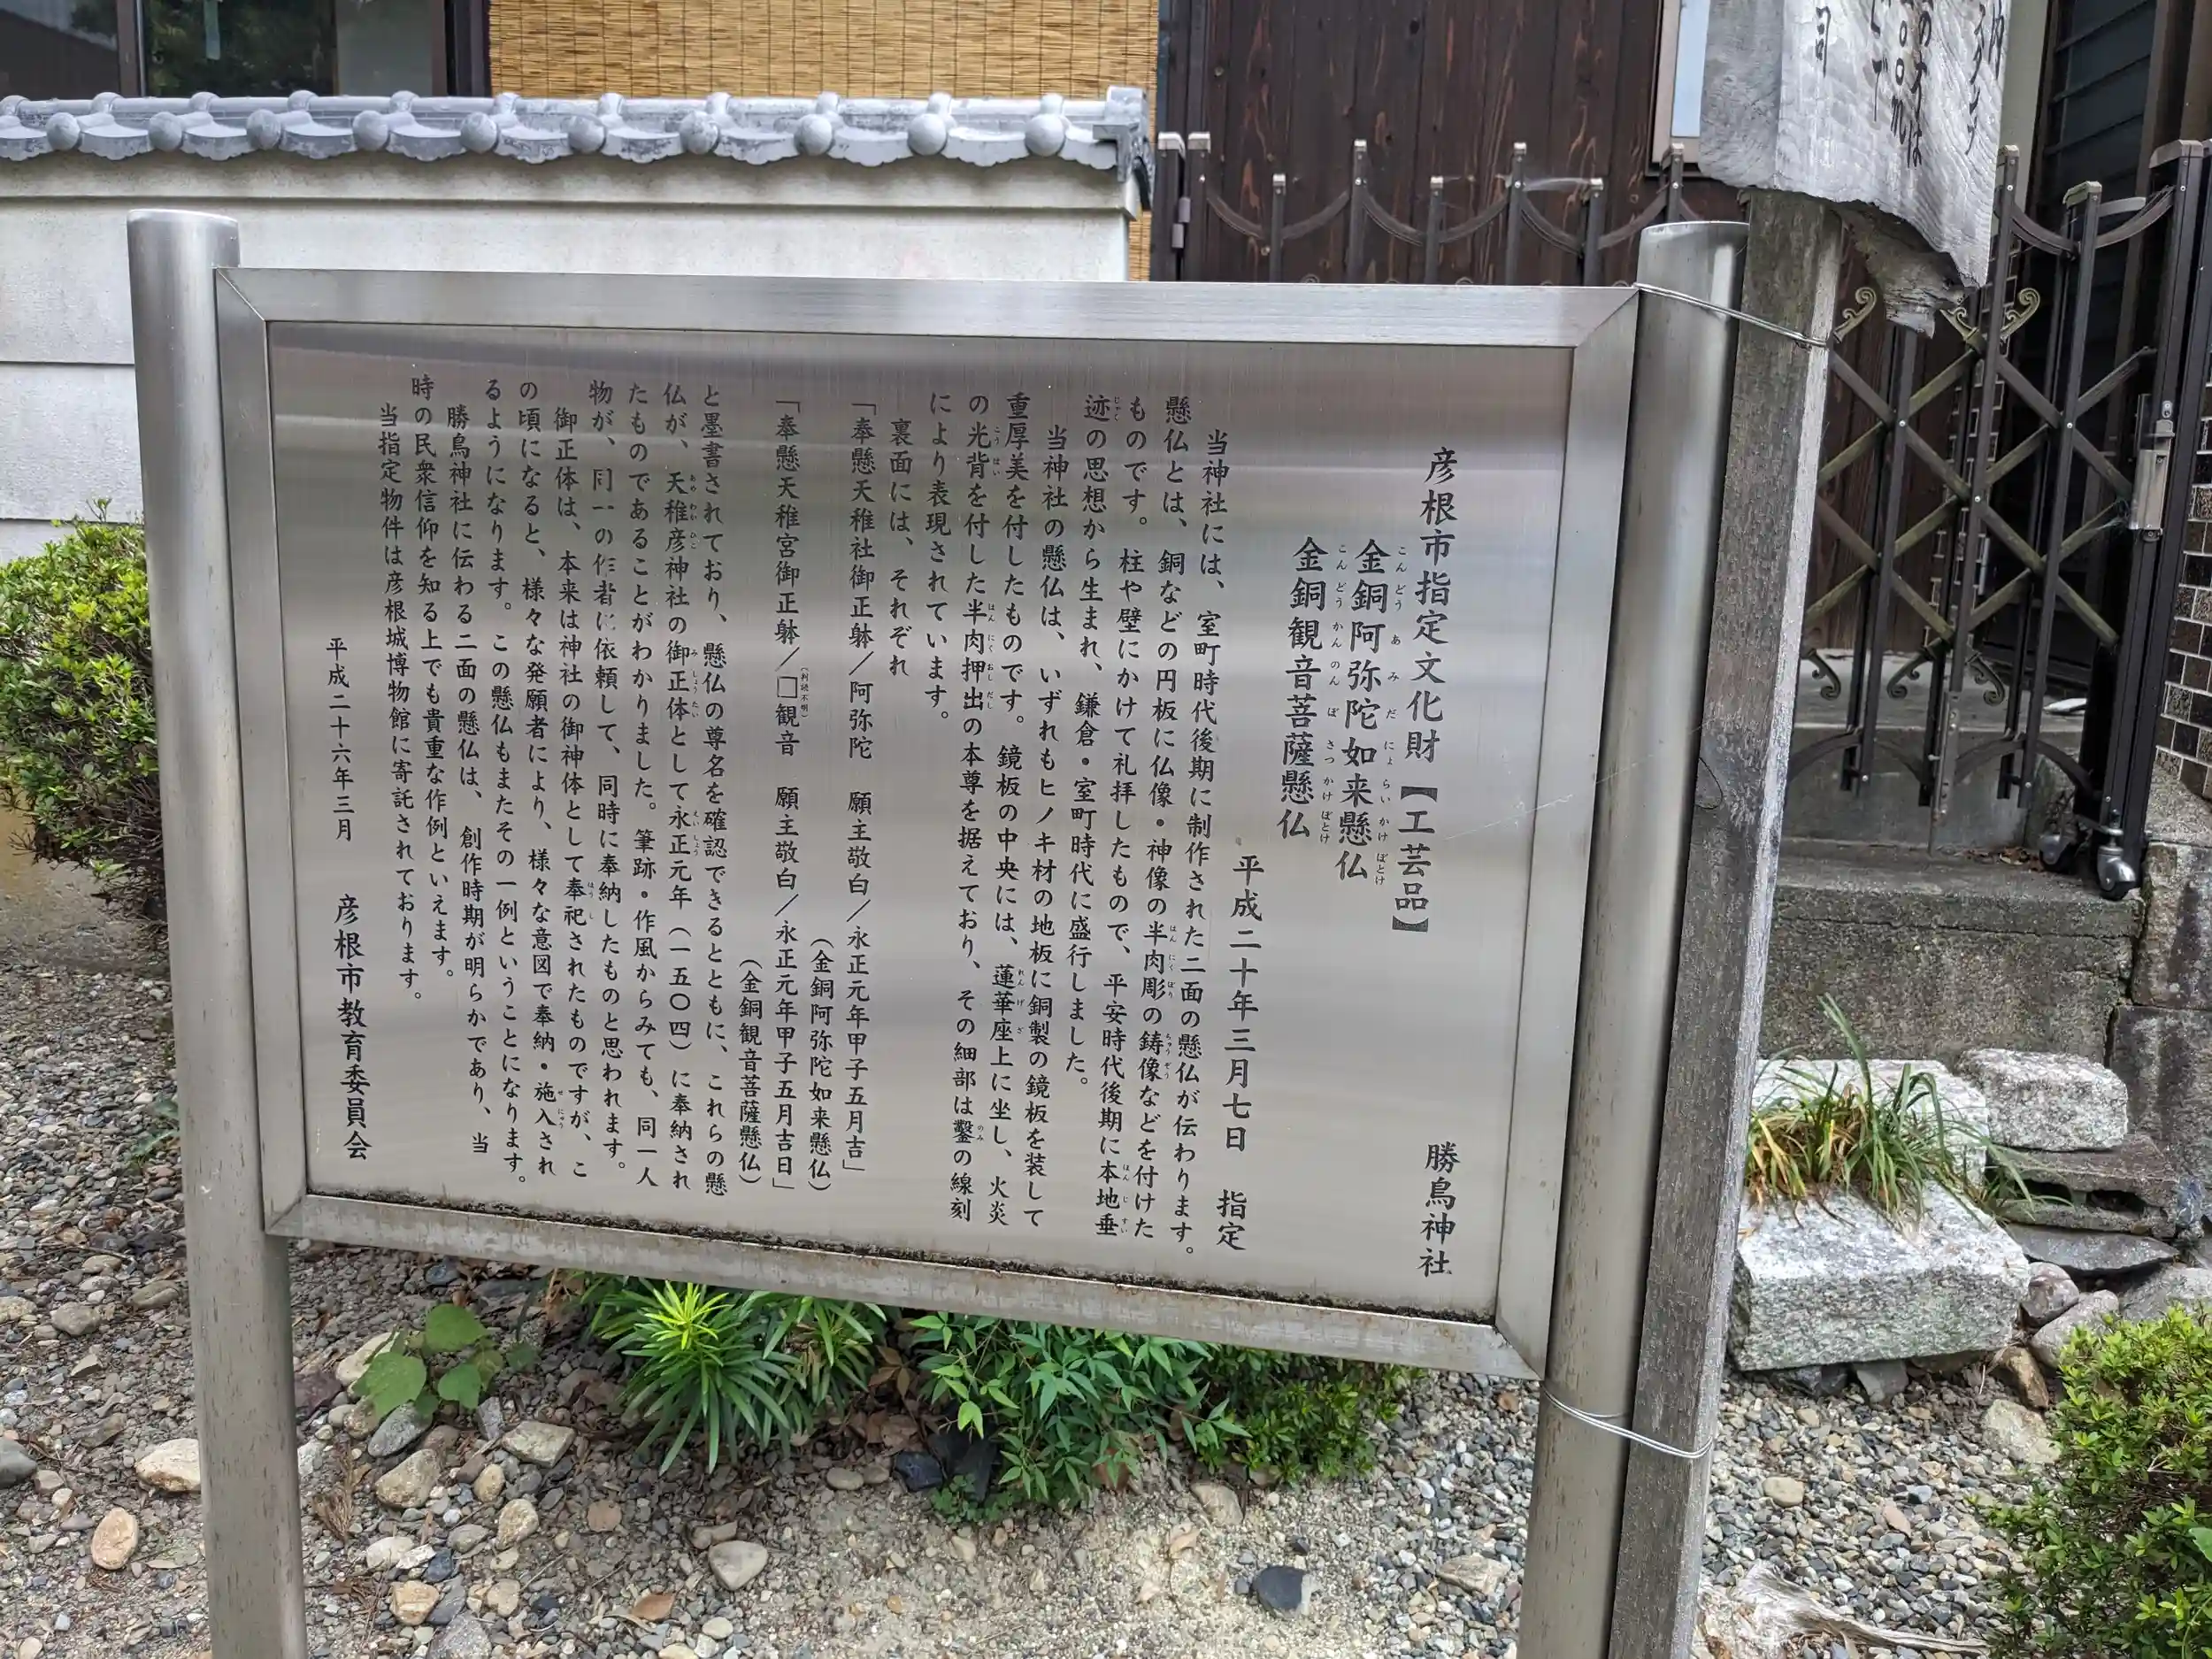 彦根市指定文化財【工芸品】 勝鳥神社
金銅阿弥陀如来懸仏
こんどう あ み だ にょ らい かけ ぼとけ
金銅観音菩薩懸仏
こんどう かんのん ぼ さつ かけ ぼとけ
平成二十年三月七日 指定
当神社には、室町時代後期に制作された二面の懸仏が伝わります。
懸仏とは、銅などの円板に仏像・神像の半肉彫の鋳像などを付けた
はん にく ぼり ちゅうぞう
ものです。柱や壁にかけて礼拝したもので、平安時代後期に本地垂
ほん じ すい
迹の思想から生まれ、鎌倉・室町時代に盛行しました。
じゃく
当神社の懸仏は、いずれもヒノキ材の地板に銅製の鏡板を装して
重厚美を付したものです。鏡板の中央には、蓮華座上に坐し、火炎
れん げ ざ
の光背を付した半肉押出の本尊を据えており、その細部は鑿の線刻
こう はい はん にく おし だし のみ
により表現されています。
裏面には、それぞれ
「奉懸天稚社御正躰／阿弥陀 願主敬白／永正元年甲子五月吉」
（金銅阿弥陀如来懸仏）
「奉懸天稚宮御正躰／□観音 願主敬白／永正元年甲子五月吉日」
（判読不明）
（金銅観音菩薩懸仏）
と墨書されており、懸仏の尊名を確認できるとともに、これらの懸
仏が、天稚彦神社の御正体として永正元年（一五〇四）に奉納され
あめ わか ひこ み しょう たい えいしょう
たものであることがわかりました。筆跡・作風からみても、同一人
物が、同一の作者に依頼して、同時に奉納したものと思われます。
御正体は、本来は神社の御神体として奉祀されたものですが、こ
ほう し
の頃になると、様々な発願者により、様々な意図で奉納・施入され
せ にゅう
るようになります。この懸仏もまたその一例ということになります。
勝鳥神社に伝わる二面の懸仏は、創作時期が明らかであり、当
時の民衆信仰を知る上でも貴重な作例といえます。
当指定物件は彦根城博物館に寄託されております。
平成二十六年三月 彦根市教育委員会